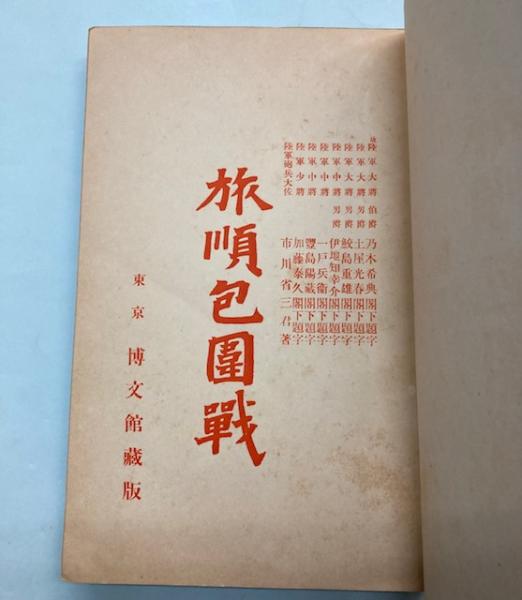 故陸軍大將伯爵 乃木希典閣下題字
陸軍大將男爵 土屋光春閣下題字
陸軍大將男爵 鮫島重雄閣下題字
陸軍中將男爵 伊地知幸介閣下題字
陸軍中將 一戸兵衛閣下題字
陸軍中將 豐島陽藏閣下題字
陸軍少將 加藤泰久閣下題字
陸軍砲兵大佐 市川省三君著
旅順包圍戰
東京 博文館藏版